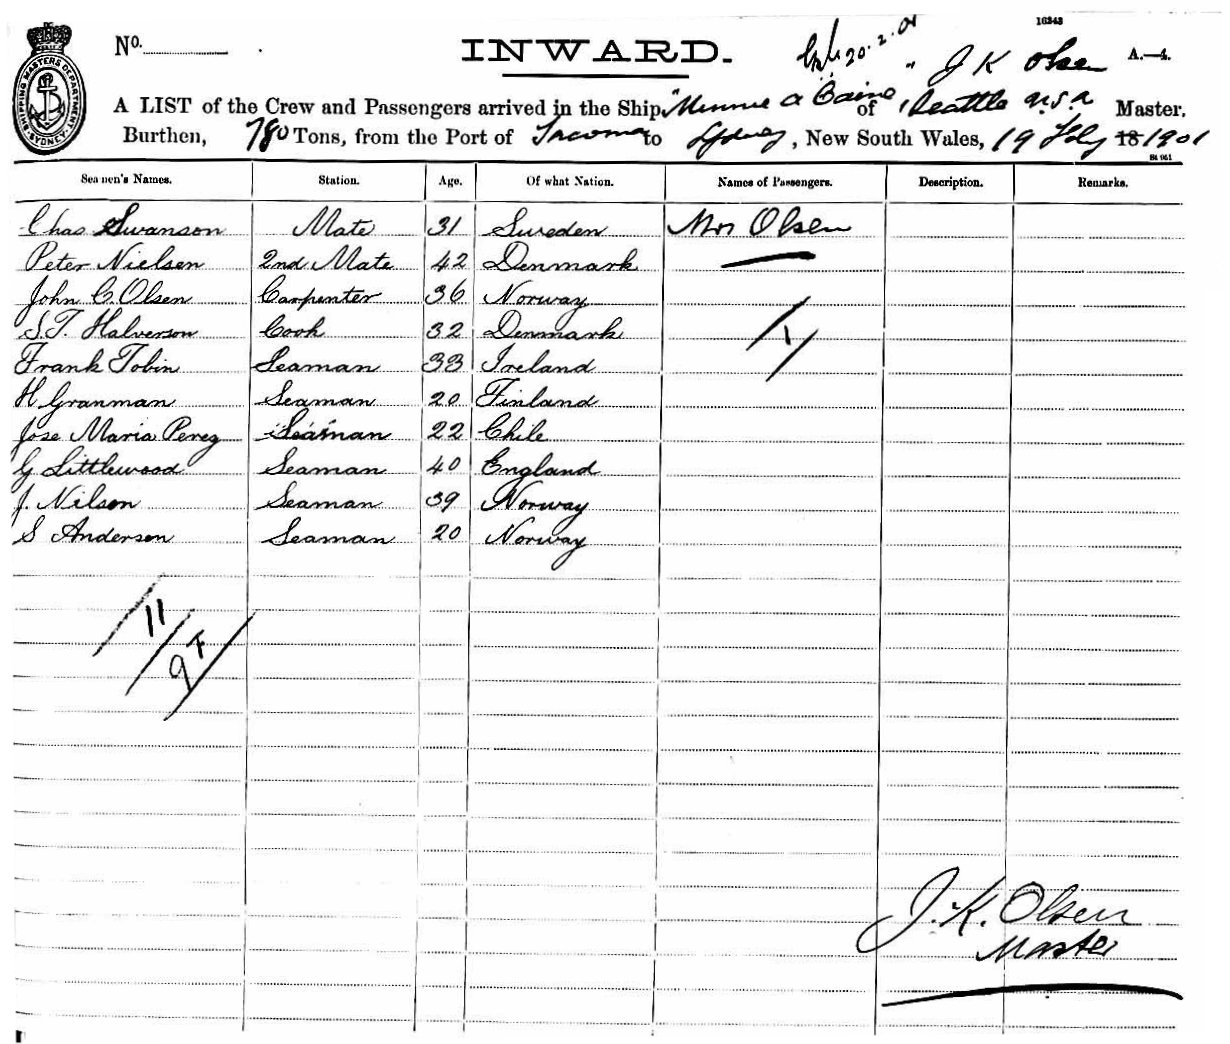 16243
No.
INWARD.
20.2.01
" J K Olsen
A.—4.
SHIPPING MASTERS DEPARTMENT SYDNEY
A LIST of the Crew and Passengers arrived in the Ship "Minnie A Caine of Seattle U.S.A Master,
Burthen, 780 Tons, from the Port of Tacoma to Sydney, New South Wales, 19 Feby 18 1901
Seamen's Names. Station. Age. Of what Nation. Names of Passengers. Description. Remarks.
Chas Swanson Mate 31 Sweden Mrs Olsen
Peter Nielsen 2nd Mate 42 Denmark
John C. Olsen Carpenter 36 Norway
S.T. Halverson Cook 32 Denmark
1
Frank Tobin Seaman 33 Ireland
H Granman Seaman 20 Finland
Jose Maria Perez Seaman 22 Chile
G Littlewood Seaman 40 England
J. Nilson Seaman 39 Norway
S Anderson Seaman 20 Norway
11
J.K. Olsen
Master